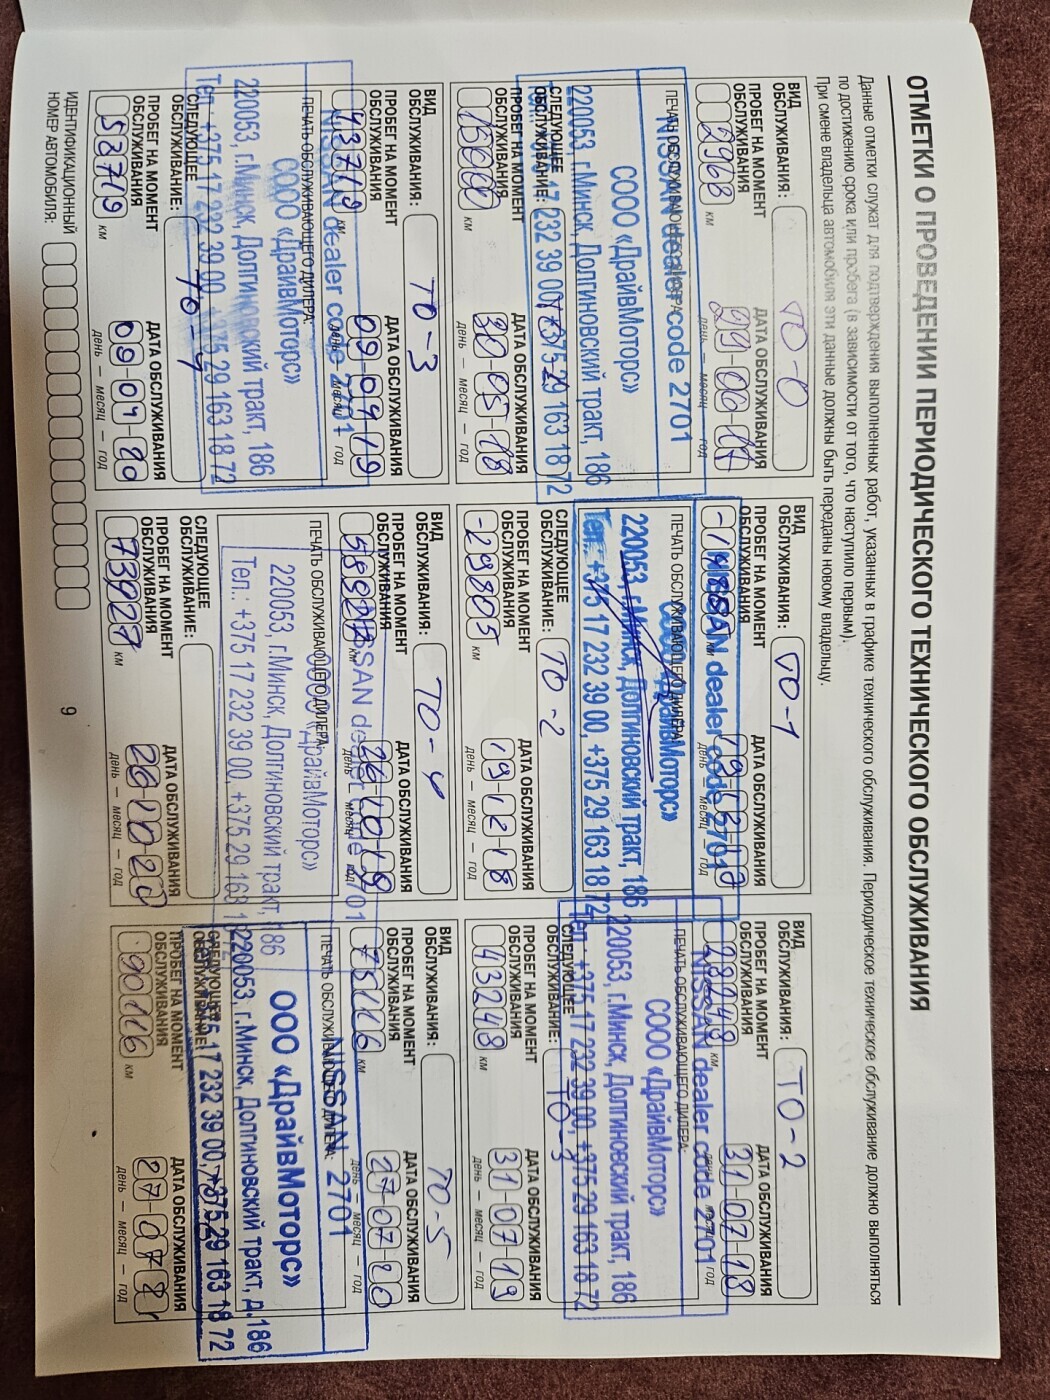 ОТМЕТКИ О ПРОВЕДЕНИИ ПЕРИОДИЧЕСКОГО ТЕХНИЧЕСКОГО ОБСЛУЖИВАНИЯ
Данные отметки служат для подтверждения выполненных работ, указанных в графике технического обслуживания. Периодическое техническое обслуживание должно выполняться
по достижению срока или пробега (в зависимости от того, что наступило первым).
При смене владельца автомобиля эти данные должны быть переданы новому владельцу.
ВИД
ОБСЛУЖИВАНИЯ: ТО-0
ПРОБЕГ НА МОМЕНТ
ОБСЛУЖИВАНИЯ
2968 км
ДАТА ОБСЛУЖИВАНИЯ
день — месяц — год
ПЕЧАТЬ ОБСЛУЖИВАЮЩЕГО ДИЛЕРА:
NISSAN dealer code 2701
СООО «ДрайвМоторс»
220053, г.Минск, Долгиновский тракт, 186
Тел.: +375 17 232 39 00, +375 29 163 18 72
СЛЕДУЮЩЕЕ
ОБСЛУЖИВАНИЕ:
ПРОБЕГ НА МОМЕНТ
ОБСЛУЖИВАНИЯ
15000 км
ДАТА ОБСЛУЖИВАНИЯ
30-05-18
день — месяц — год
ВИД
ОБСЛУЖИВАНИЯ: ТО-1
ПРОБЕГ НА МОМЕНТ
ОБСЛУЖИВАНИЯ
км
ДАТА ОБСЛУЖИВАНИЯ
день — месяц — год
ПЕЧАТЬ ОБСЛУЖИВАЮЩЕГО ДИЛЕРА:
NISSAN dealer code 2701
СООО «ДрайвМоторс»
220053, г.Минск, Долгиновский тракт, 186
Тел.: +375 17 232 39 00, +375 29 163 18 72
СЛЕДУЮЩЕЕ
ОБСЛУЖИВАНИЕ: ТО-2
ПРОБЕГ НА МОМЕНТ
ОБСЛУЖИВАНИЯ
-29805 км
ДАТА ОБСЛУЖИВАНИЯ
19-12-18
день — месяц — год
ВИД
ОБСЛУЖИВАНИЯ: ТО-2
ПРОБЕГ НА МОМЕНТ
ОБСЛУЖИВАНИЯ
28248 км
ДАТА ОБСЛУЖИВАНИЯ
31-07-18
день — месяц — год
ПЕЧАТЬ ОБСЛУЖИВАЮЩЕГО ДИЛЕРА:
NISSAN dealer code 2701
СООО «ДрайвМоторс»
220053, г.Минск, Долгиновский тракт, 186
Тел.: +375 17 232 39 00, +375 29 163 18 72
СЛЕДУЮЩЕЕ
ОБСЛУЖИВАНИЕ: ТО-3
ПРОБЕГ НА МОМЕНТ
ОБСЛУЖИВАНИЯ
43248 км
ДАТА ОБСЛУЖИВАНИЯ
31-07-19
день — месяц — год
ВИД
ОБСЛУЖИВАНИЯ: ТО-3
ПРОБЕГ НА МОМЕНТ
ОБСЛУЖИВАНИЯ
43719 км
ДАТА ОБСЛУЖИВАНИЯ
09-04-19
день — месяц — год
ПЕЧАТЬ ОБСЛУЖИВАЮЩЕГО ДИЛЕРА:
NISSAN dealer code 2701
СООО «ДрайвМоторс»
220053, г.Минск, Долгиновский тракт, 186
Тел.: +375 17 232 39 00, +375 29 163 18 72
СЛЕДУЮЩЕЕ
ОБСЛУЖИВАНИЕ: ТО-4
ПРОБЕГ НА МОМЕНТ
ОБСЛУЖИВАНИЯ
58719 км
ДАТА ОБСЛУЖИВАНИЯ
09-04-20
день — месяц — год
ВИД
ОБСЛУЖИВАНИЯ: ТО-4
ПРОБЕГ НА МОМЕНТ
ОБСЛУЖИВАНИЯ
58927 км
ДАТА ОБСЛУЖИВАНИЯ
26 10 19
день — месяц — год
ПЕЧАТЬ ОБСЛУЖИВАЮЩЕГО ДИЛЕРА:
NISSAN dealer code 2701
СООО «ДрайвМоторс»
220053, г.Минск, Долгиновский тракт, 186
Тел.: +375 17 232 39 00, +375 29 163 18 72
СЛЕДУЮЩЕЕ
ОБСЛУЖИВАНИЕ:
ПРОБЕГ НА МОМЕНТ
ОБСЛУЖИВАНИЯ
73927 км
ДАТА ОБСЛУЖИВАНИЯ
26 10 20
день — месяц — год
ВИД
ОБСЛУЖИВАНИЯ: ТО-5
ПРОБЕГ НА МОМЕНТ
ОБСЛУЖИВАНИЯ
75116 км
ДАТА ОБСЛУЖИВАНИЯ
27-07-20
день — месяц — год
ПЕЧАТЬ ОБСЛУЖИВАЮЩЕГО ДИЛЕРА:
NISSAN 2701
ООО «ДрайвМоторс»
220053, г.Минск, Долгиновский тракт, д.186
Тел.: +375 17 232 39 00, +375 29 163 18 72
СЛЕДУЮЩЕЕ
ОБСЛУЖИВАНИЕ:
ПРОБЕГ НА МОМЕНТ
ОБСЛУЖИВАНИЯ
90116 км
ДАТА ОБСЛУЖИВАНИЯ
27-07 21
день — месяц — год
ИДЕНТИФИКАЦИОННЫЙ
НОМЕР АВТОМОБИЛЯ:
9